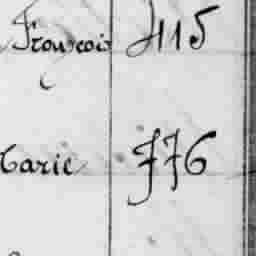 François 415
Marie 776